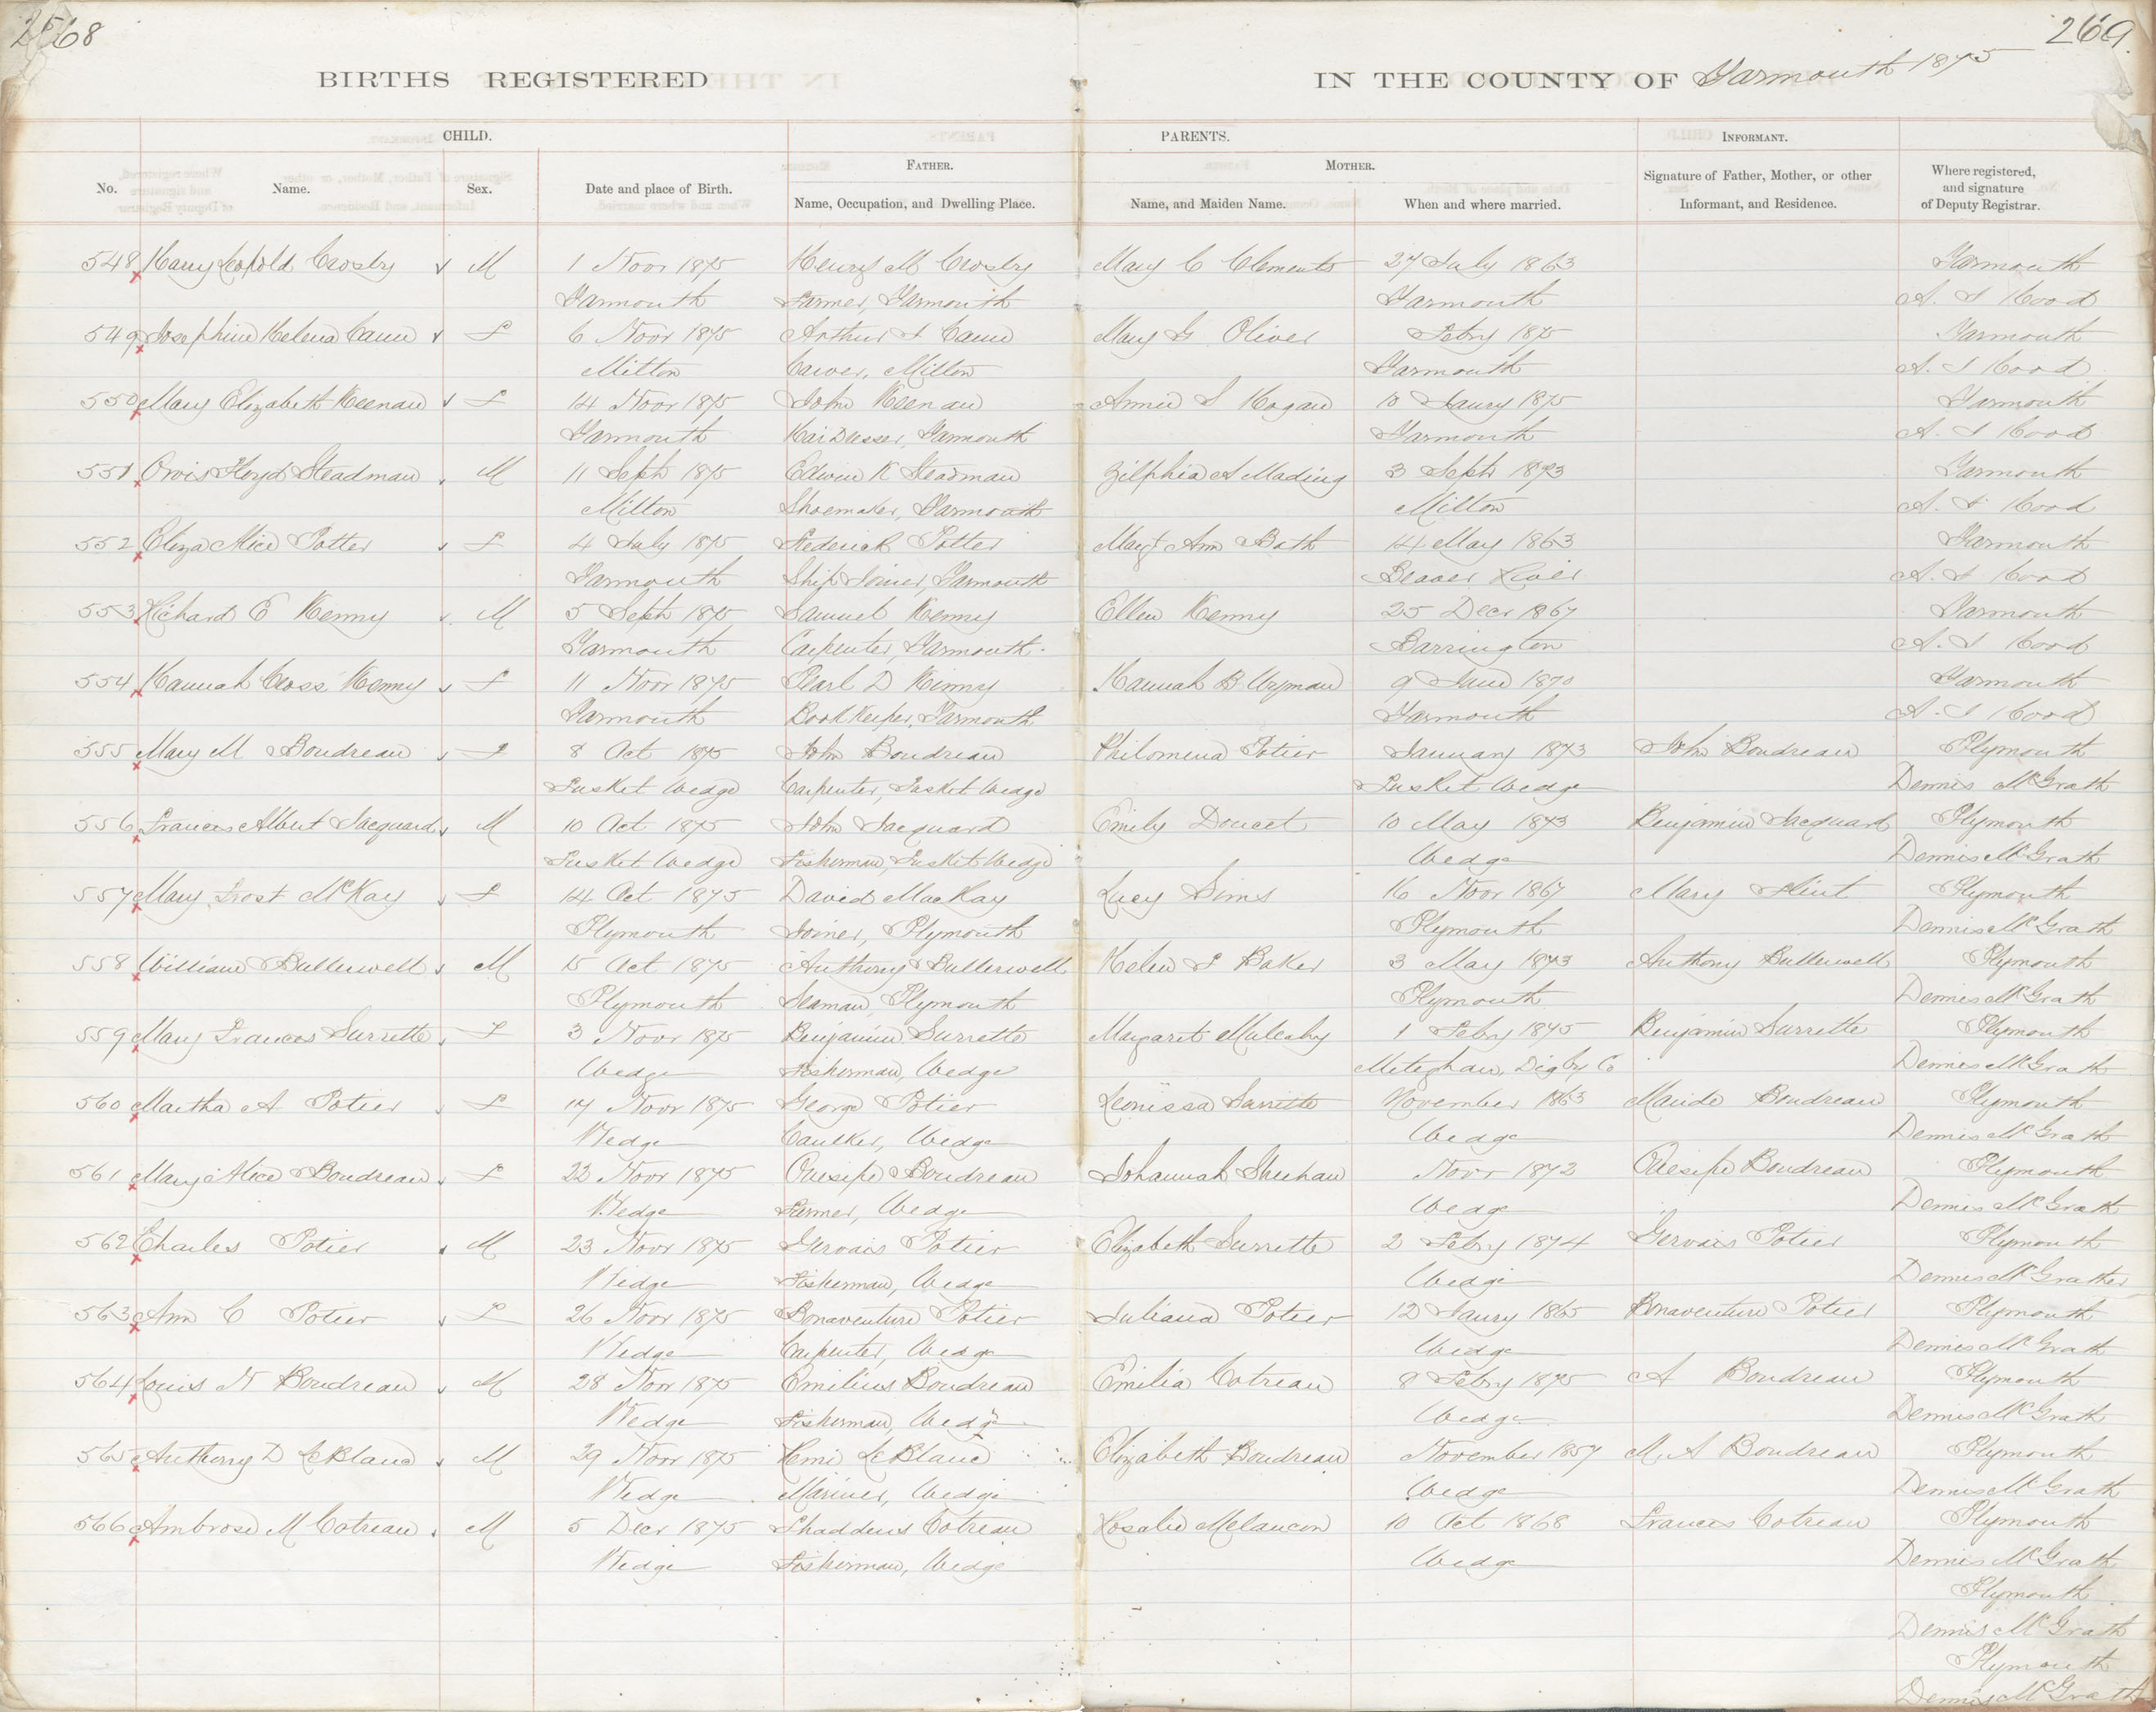 268
269.
BIRTHS REGISTERED
IN THE COUNTY OF Yarmouth 1875
CHILD.
PARENTS.
INFORMANT.
FATHER.
MOTHER.
No. Name. Sex. Date and place of Birth. Name, Occupation, and Dwelling Place. Name, and Maiden Name. When and where married. Signature of Father, Mother, or other Informant, and Residence. Where registered, and signature of Deputy Registrar.
548 Harry Leopold Crosby M 1 Novr 1875 Henry M Crosby Mary C Clements 27 July 1863 Yarmouth
Yarmouth Farmer, Yarmouth Yarmouth A. J Hood
549 Josephine Helena Cann F 6 Novr 1875 Arthur J Cann Mary G Oliver Febry 1875 Yarmouth
Milton Carver, Milton Yarmouth A. J Hood
550 Mary Elizabeth Keenan F 14 Novr 1875 John Keenan Annie S Hogan 10 Jaury 1875 Yarmouth
Yarmouth HairDresser, Yarmouth Yarmouth A. J Hood
551 Orvis Lloyd Steadman M 11 Septr 1875 Edwin K Steadman Zilphia A Mading 3 Septr 1873 Yarmouth
Milton Shoemaker, Yarmouth Milton A. J Hood
552 Eliza Alice Potter F 4 July 1875 Frederick Potter Margt Ann Bath 14 May 1863 Yarmouth
Yarmouth Ship Joiner, Yarmouth Beaver River A. J Hood
553 Richard E Kenny M 5 Septr 1875 Samuel Kenny Ellen Kenny 25 Decr 1867 Yarmouth
Yarmouth Carpenter, Yarmouth. Barrington A. J Hood
554 Hannah Cross Kenny F 11 Novr 1875 Pearl D Kinny Hannah B Wyman 9 June 1870 Yarmouth
Yarmouth BookKeeper, Yarmouth Yarmouth A. J Hood
555 Mary M Boudreau F 8 Oct 1875 John Boudreau Philomena Potier January 1873 John Boudreau Plymouth
Tusket Wedge Carpenter, Tusket Wedge Tusket Wedge Dennis McGrath
556 Frances Albert Jacquard M 10 Oct 1875 John Jacquard Emily Doucet 10 May 1873 Benjamin Jacquard Plymouth
Tusket Wedge Fisherman, Tusket Wedge Wedge Dennis McGrath
557 Mary Frost McKay F 14 Oct 1875 David MacKay Lucy Sims 16 Novr 1867 Mary Flint Plymouth
Plymouth Joiner, Plymouth Plymouth Dennis McGrath
558 William Bullerwell M 15 Oct 1875 Anthony Bullerwell Helen F Baker 3 May 1873 Anthony Bullerwell Plymouth
Plymouth Seaman, Plymouth Plymouth Dennis McGrath
559 Mary Frances Surrette F 3 Novr 1875 Benjamin Surrette Margaret Mulcahy 1 Febry 1875 Benjamin Surrette Plymouth
Wedge Fisherman, Wedge Meteghan, Digby Co Dennis McGrath
560 Martha A Potier F 17 Novr 1875 George Potier Leonissa Surrette November 1863 Maude Boudreau Plymouth
Wedge Caulker, Wedge Wedge Dennis McGrath
561 Mary Alice Boudreau F 22 Novr 1875 Onesipe Boudreau Johannah Sheehan Novr 1872 Onesipe Boudreau Plymouth
Wedge Farmer, Wedge Wedge Dennis McGrath
562 Charles Potier M 23 Novr 1875 Gervais Potier Elizabeth Surrette 2 Febry 1874 Gervais Potier Plymouth
Wedge Fisherman, Wedge Wedge Dennis McGrather
563 Ann C Potier F 26 Novr 1875 Bonaventure Potier Juliana Potier 12 Jaury 1865 Bonaventure Potier Plymouth
Wedge Carpenter, Wedge Wedge Dennis McGrath
564 Louis N Boudreau M 28 Novr 1875 Emilius Boudreau Emilia Cotreau 8 Febry 1875 A Boudreau Plymouth
Wedge Fisherman, Wedge Wedge Dennis McGrath
565 Anthony D LeBlanc M 29 Novr 1875 Remi LeBlanc Elizabeth Boudreau November 1857 M. A Boudreau Plymouth
Wedge Mariner, Wedge Wedge Dennis McGrath
566 Ambrose M Cotreau M 5 Decr 1875 Thaddeus Cotreau Rosalie Melancon 10 Oct 1868 Frances Cotreau Plymouth
Wedge Fisherman, Wedge Wedge Dennis McGrath
Plymouth
Dennis McGrath
Plymouth
Dennis McGrath